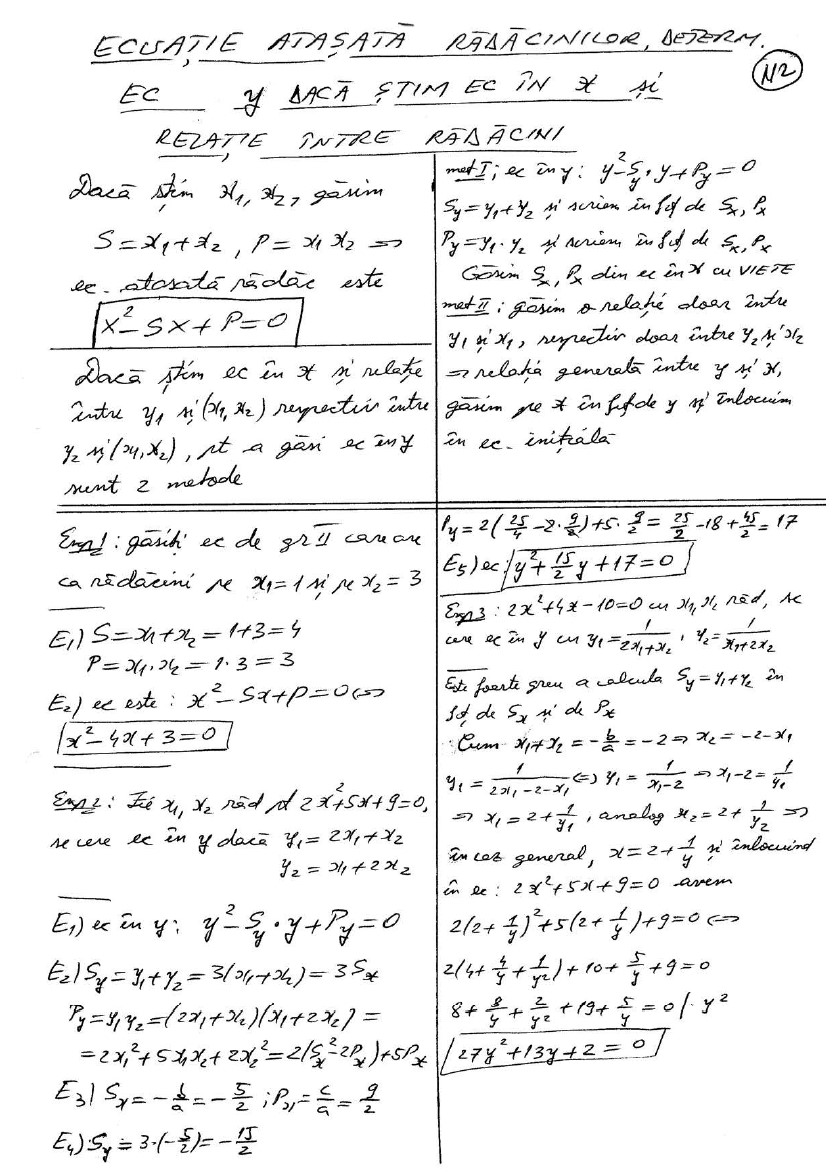 ECUAȚIE ATAȘATĂ RĂDĂCINILOR, DETERM.
N2
EC y DACĂ ȘTIM EC ÎN x și
RELAȚIE ÎNTRE RĂDĂCINI
Dacă știm x₁, x₂, găsim
S = x₁ + x₂, P = x₁ x₂ ⇒
ec. atașată rădăc este
x² - Sx + P = 0
Dacă știm ec în x și relație
între y₁ și (x₁, x₂) respectiv între
y₂ și (x₁, x₂), pt a găsi ec în y
sunt 2 metode
met I; ec în y: y² - S_y · y + P_y = 0
S_y = y₁ + y₂ și scriem în fcț de S_x, P_x
P_y = y₁ · y₂ și scriem în fcț de S_x, P_x
Găsim S_x, P_x din ec în x cu VIETE
met II: găsim o relație doar între
y₁ și x₁, respectiv doar între y₂ și x₂
⇒ relația generată între y și x,
găsim pe x în fcț de y și înlocuim
în ec. inițială
Exp 1: găsiți ec de gr II care are
ca rădăcini pe x₁ = 1 și pe x₂ = 3
E₁) S = x₁ + x₂ = 1 + 3 = 4
P = x₁ · x₂ = 1 · 3 = 3
E₂) ec este: x² - Sx + P = 0 ⇔
x² - 4x + 3 = 0
Exp 2: Fie x₁, x₂ răd pt 2x² + 5x + 9 = 0,
se cere ec în y dacă y₁ = 2x₁ + x₂
y₂ = x₁ + 2x₂
E₁) ec în y: y² - S_y · y + P_y = 0
E₂) S_y = y₁ + y₂ = 3(x₁ + x₂) = 3S_x
P_y = y₁ y₂ = (2x₁ + x₂)(x₁ + 2x₂) =
= 2x₁² + 5x₁x₂ + 2x₂² = 2(S_x² - 2P_x) + 5P_x
E₃) S_x = -b/a = -5/2; P_x = c/a = 9/2
E₄) S_y = 3·(-5/2) = -15/2
P_y = 2(25/4 - 2·9/2) + 5·9/2 = 25/2 - 18 + 45/2 = 17
E₅) ec: y² + 15/2 y + 17 = 0
Exp 3: 2x² + 4x - 10 = 0 cu x₁, x₂ răd, se
cere ec în y cu y₁ = 1/(2x₁ + x₂), y₂ = 1/(x₁ + 2x₂)
Este foarte greu a calcula S_y = y₁ + y₂ în
fcț de S_x și de P_x
Cum x₁ + x₂ = -b/a = -2 ⇒ x₂ = -2 - x₁
y₁ = 1/(2x₁ - 2 - x₁) ⇔ y₁ = 1/(x₁ - 2) ⇒ x₁ - 2 = 1/y₁
⇒ x₁ = 2 + 1/y₁, analog x₂ = 2 + 1/y₂ ⇒
în caz general, x = 2 + 1/y și înlocuind
în ec: 2x² + 5x + 9 = 0 avem
2(2 + 1/y)² + 5(2 + 1/y) + 9 = 0 ⇔
2(4 + 4/y + 1/y²) + 10 + 5/y + 9 = 0
8 + 8/y + 2/y² + 19 + 5/y = 0 | · y²
27y² + 13y + 2 = 0